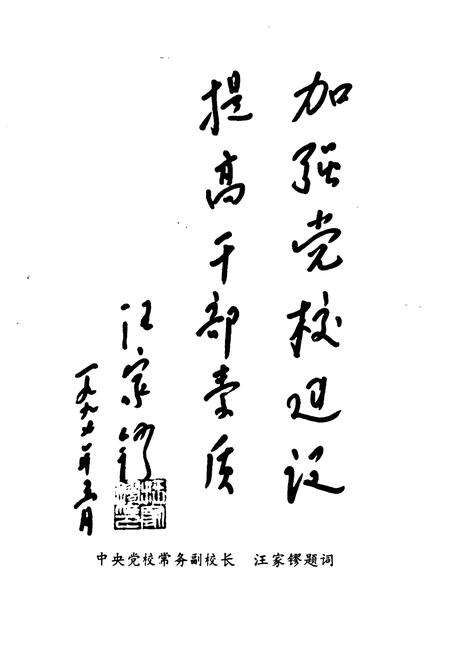 加强党校建设
提高干部素质
汪家镠
一九九七年三月
中央党校常务副校长　汪家镠题词